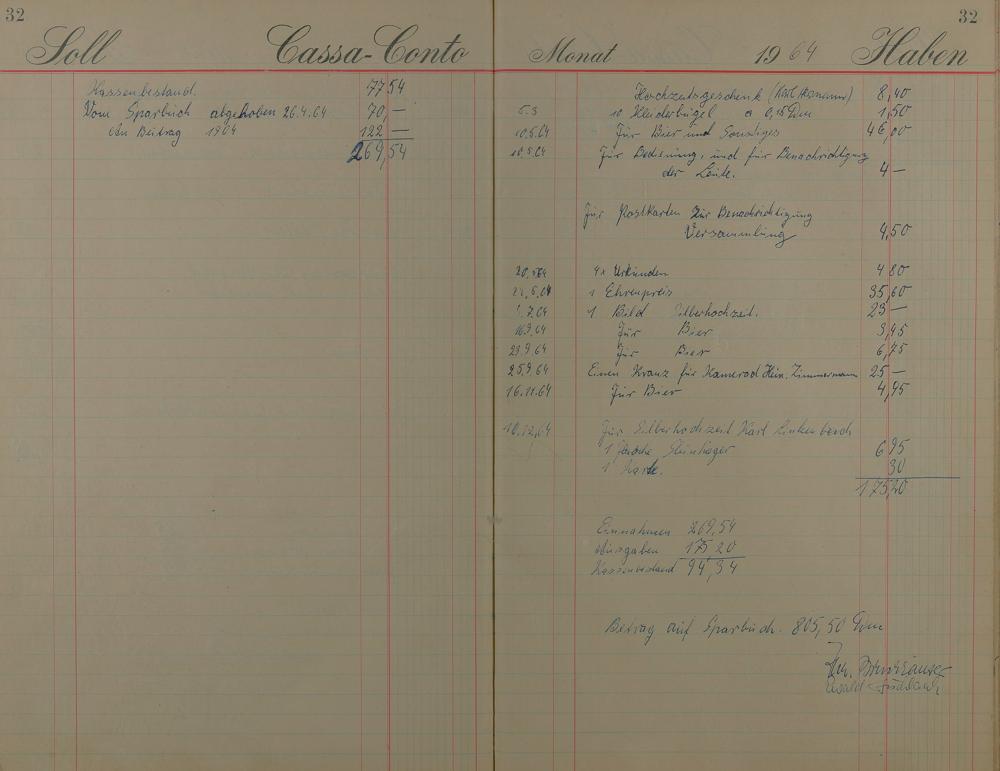 32
Soll Cassa-Conto
Kassenbestand. 77 54
Vom Sparbuch abgehoben 26.4.64 70,—
An Beitrag 1964 122 —
269,54
32
Monat 1964 Haben
Hochzeitsgeschenk (Karl 8,40
5.3 10 Kleiderbügel a 0,15 Dm 1,50
10.5.64 Für Bier und Sonstiges 46,00
10.5.64 Für Bedienung, und für Benachrichtigung
der Leute. 4 —
Für Postkarten zur Benachrichtigung
Versammlung 4,50
4x Urkunden 4 80
1 Ehrenpreis 35,60
1.7.64 1 Bild Silberhochzeit. 23 —
16.9.64 Für Bier 3,45
23.9.64 Für Bier 6,75
25.9.64 Einen Kranz für Kamerad Hein. Zimmermann 25 —
16.11.64 Für Bier 4,95
10.12.64 Für Silberhochzeit Karl
1 Flasche Steinhäger 6 95
1 Karte. 30
175,20
Einnahmen 269,54
Ausgaben 175 20
Kassenbestand 94,34
Betrag auf Sparbuch. 805,50 Dm